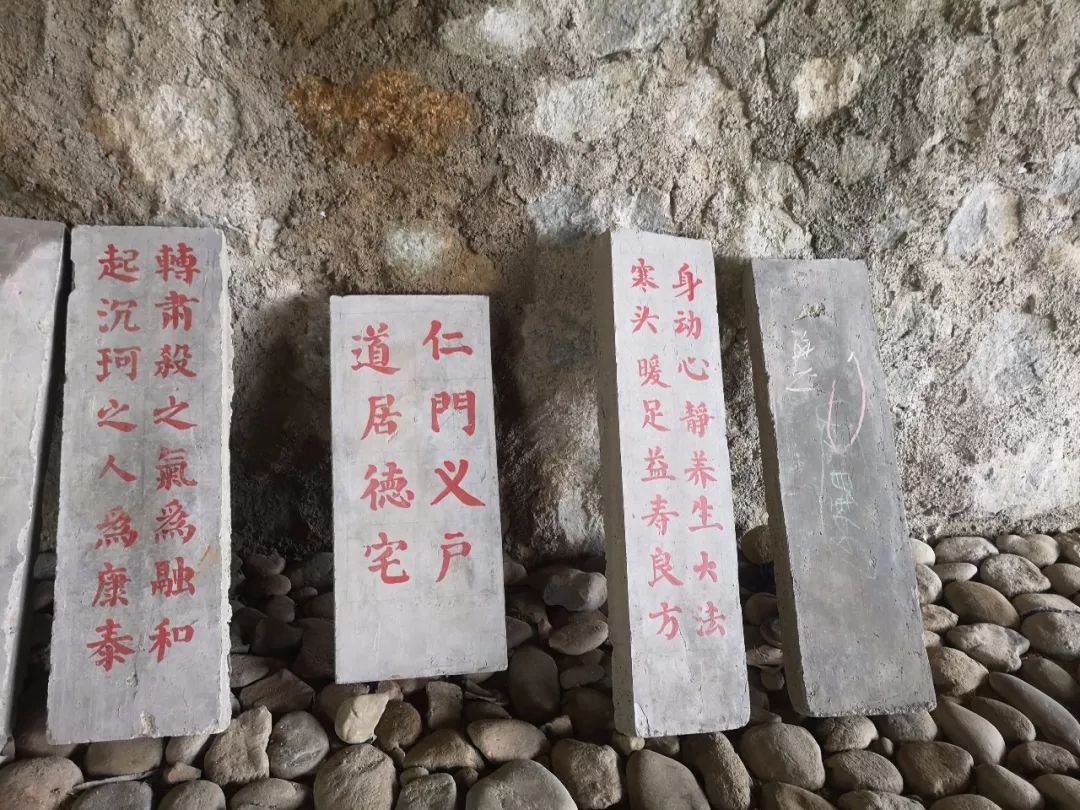 轉肅殺之氣為融和
起沉珂之人為康泰
仁門义戶
道居德宅
身动心靜养生大法
寒头暖足益寿良方